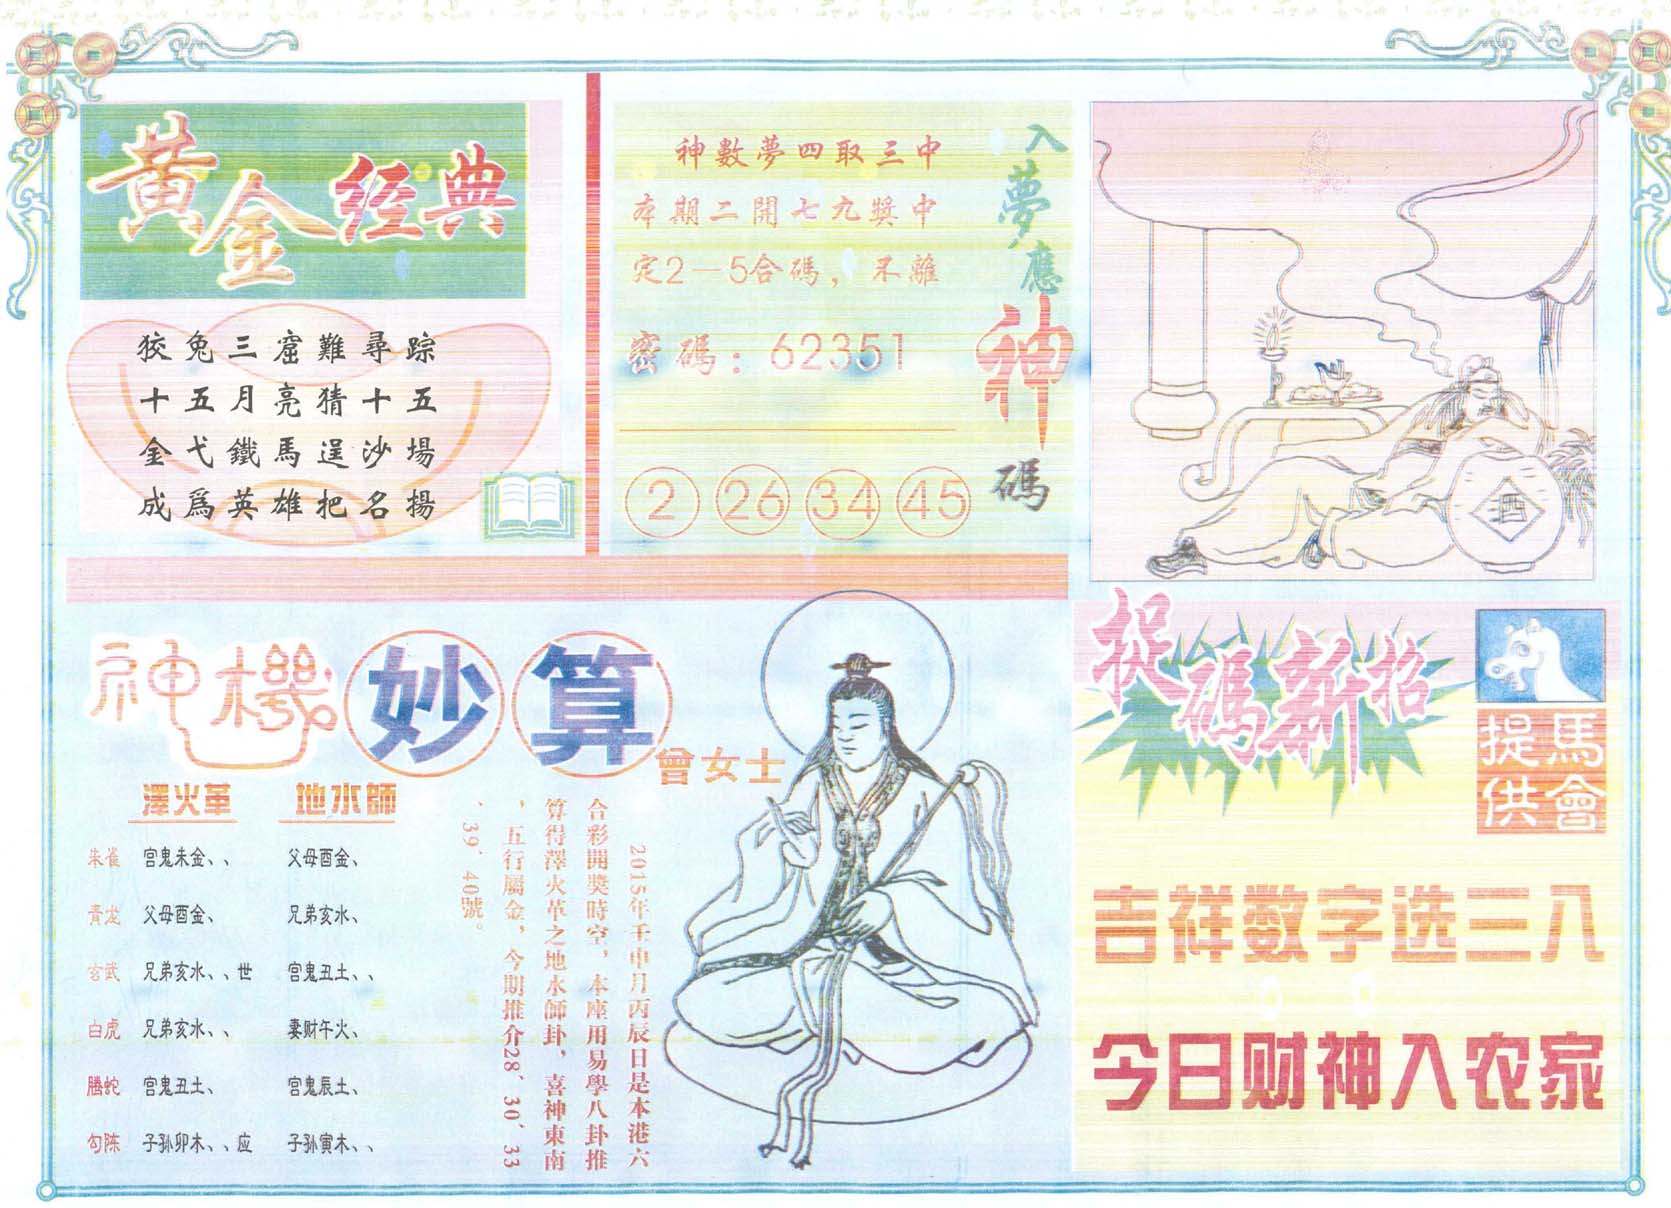 黄金经典
狡兔三窟難尋踪
十五月亮猜十五
金戈鐵馬逞沙場
成爲英雄把名揚
神數夢四取三中
本期二開七九獎中
定2—5合碼，不離
密碼：62351
2 26 34 45
入夢應神碼
酒
神機妙算
曾女士
澤火革 地水師
朱雀 宫鬼未金、、 父母酉金、
青龙 父母酉金、 兄弟亥水、
玄武 兄弟亥水、、世 宫鬼丑土、、
白虎 兄弟亥水、、 妻财午火、
騰蛇 宫鬼丑土、 宫鬼辰土、
勾陈 子孙卯木、、应 子孙寅木、、
2015年壬申月丙辰日是本港六
合彩開獎時空，本座用易學八卦推
算得澤火革之地水師卦，喜神東南
，五行屬金，今期推介28、30、33
、39、40號。
捉碼新招
馬會提供
吉祥数字选三八
今日财神入农家